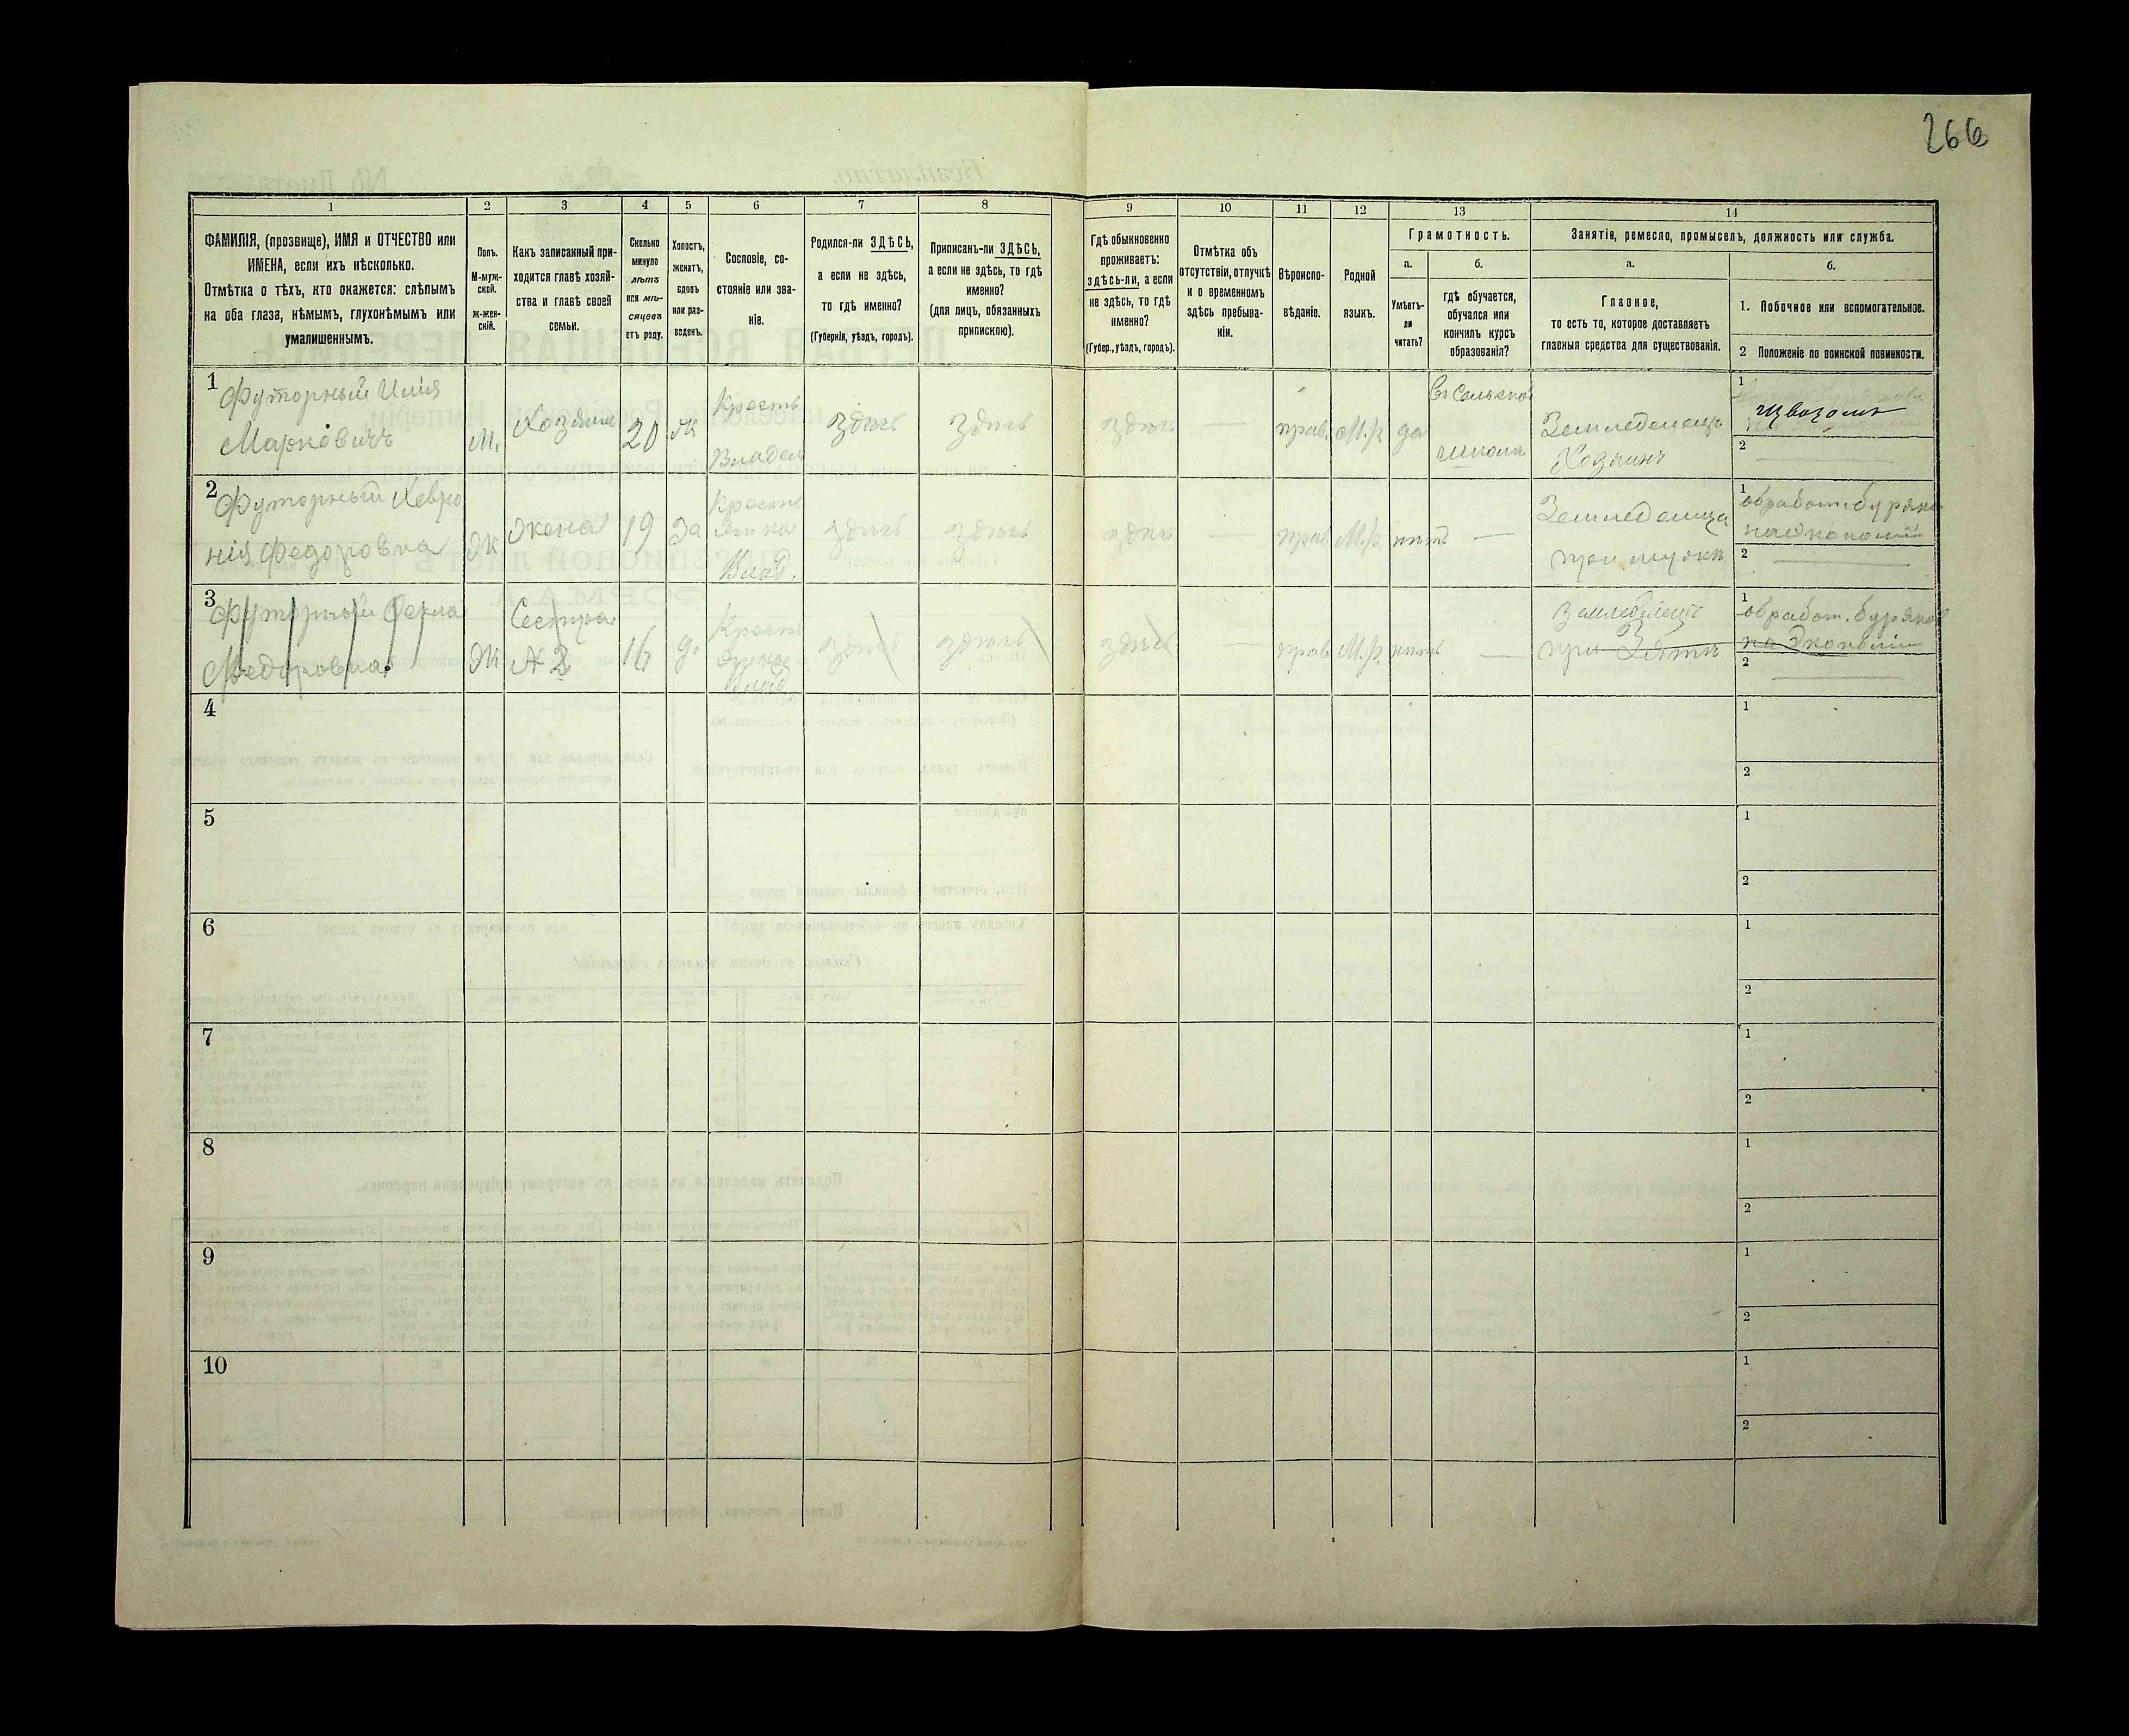 266
1 2 3 4 5 6 7 8 9 10 11 12 13 14
ФАМИЛІЯ, (прозвище), ИМЯ и ОТЧЕСТВО или
ИМЕНА, если ихъ нѣсколько.
Отмѣтка о тѣхъ, кто окажется: слѣпымъ
на оба глаза, нѣмымъ, глухонѣмымъ или
умалишеннымъ.
Полъ.
М-муж-
ской.
Ж-жен-
скій.
Какъ записанный при-
ходится главѣ хозяй-
ства и главѣ своей
семьи.
Сколько
минуло
лѣтъ
или мѣ-
сяцевъ
отъ роду.
Холостъ,
женатъ,
вдовъ
или раз-
веденъ.
Сословіе, со-
стояніе или зва-
ніе.
Родился-ли ЗДѢСЬ,
а если не здѣсь,
то гдѣ именно?
(Губернія, уѣздъ, городъ).
Приписанъ-ли ЗДѢСЬ,
а если не здѣсь, то гдѣ
именно?
(для лицъ, обязанныхъ
припискою).
Гдѣ обыкновенно
проживаетъ:
здѣсь-ли, а если
не здѣсь, то гдѣ
именно?
(Губер., уѣздъ, городъ).
Отмѣтка объ
отсутствіи, отлучкѣ
и о временномъ
здѣсь пребыва-
ніи.
Вѣроиспо-
вѣданіе.
Родной
языкъ.
Грамотность.
а.
Умѣетъ-
ли
читать?
б.
гдѣ обучается,
обучался или
кончилъ курсъ
образованія?
Занятіе, ремесло, промыселъ, должность или служба.
а.
Главное,
то есть то, которое доставляетъ
главныя средства для существованія.
б.
1. Побочное или вспомогательное.
2 Положеніе по воинской повинности.
1
Футорный Илія
Марковичъ
М.
Хозяинъ
20
Ж
Крестъ
Владел
здѣсь
здѣсь
здѣсь
—
прав.
М.р.
да
Въ Сельской
школѣ
Земледелецъ
Хозяинъ
1
извозомъ
2
2
Футорный Хевро
нія Федоровна
Ж
Жена
19
За
Крестъ
янка
Влад.
здѣсь
здѣсь
здѣсь
—
прав
М.р.
нѣтъ
—
Земледелица
при мужѣ
1
обработ. буряко
на Экономіи
2
3
Футорный Фекла
Федоровна
Ж
Сестра
№ 2
16
д.
Крест
янка
Влад
здѣсь
здѣсь
здѣсь
—
прав
М.р.
нѣтъ
—
Земледѣлецъ
при Зятѣ
1
обработ. буряков
на Экономіи
2
4
1
2
5
1
2
6
1
2
7
1
2
8
1
2
9
1
2
10
1
2